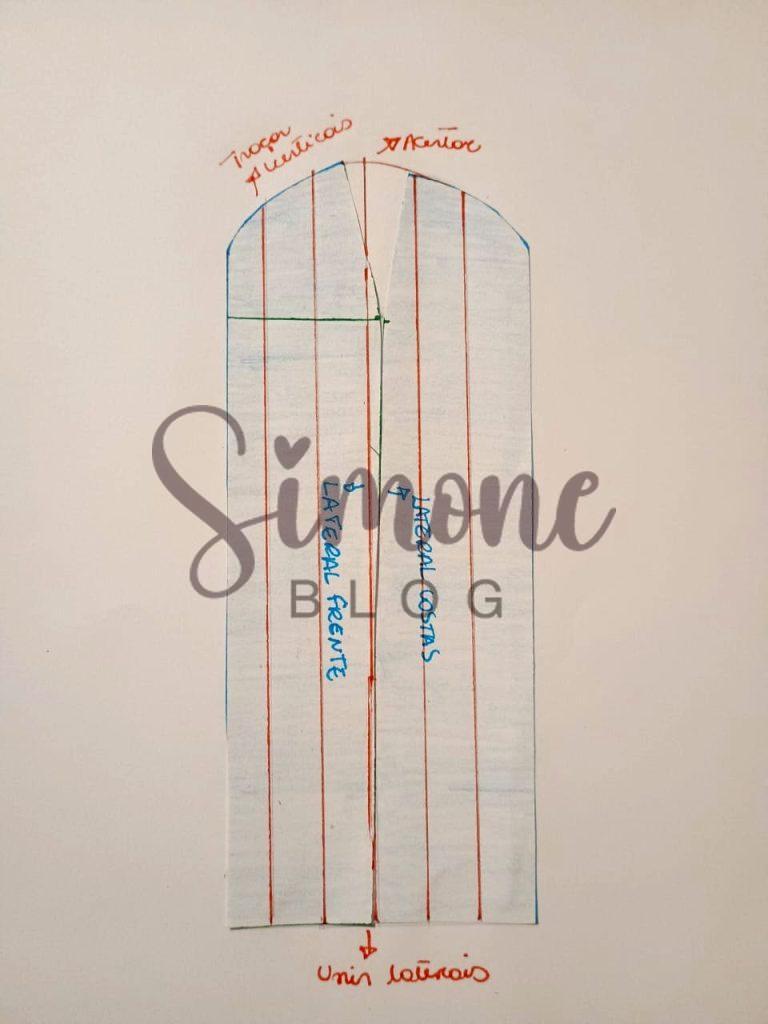 Traçar
verticais
Acertar
Simone
BLOG
LATERAL FRENTE
LATERAL COSTAS
Unir laterais